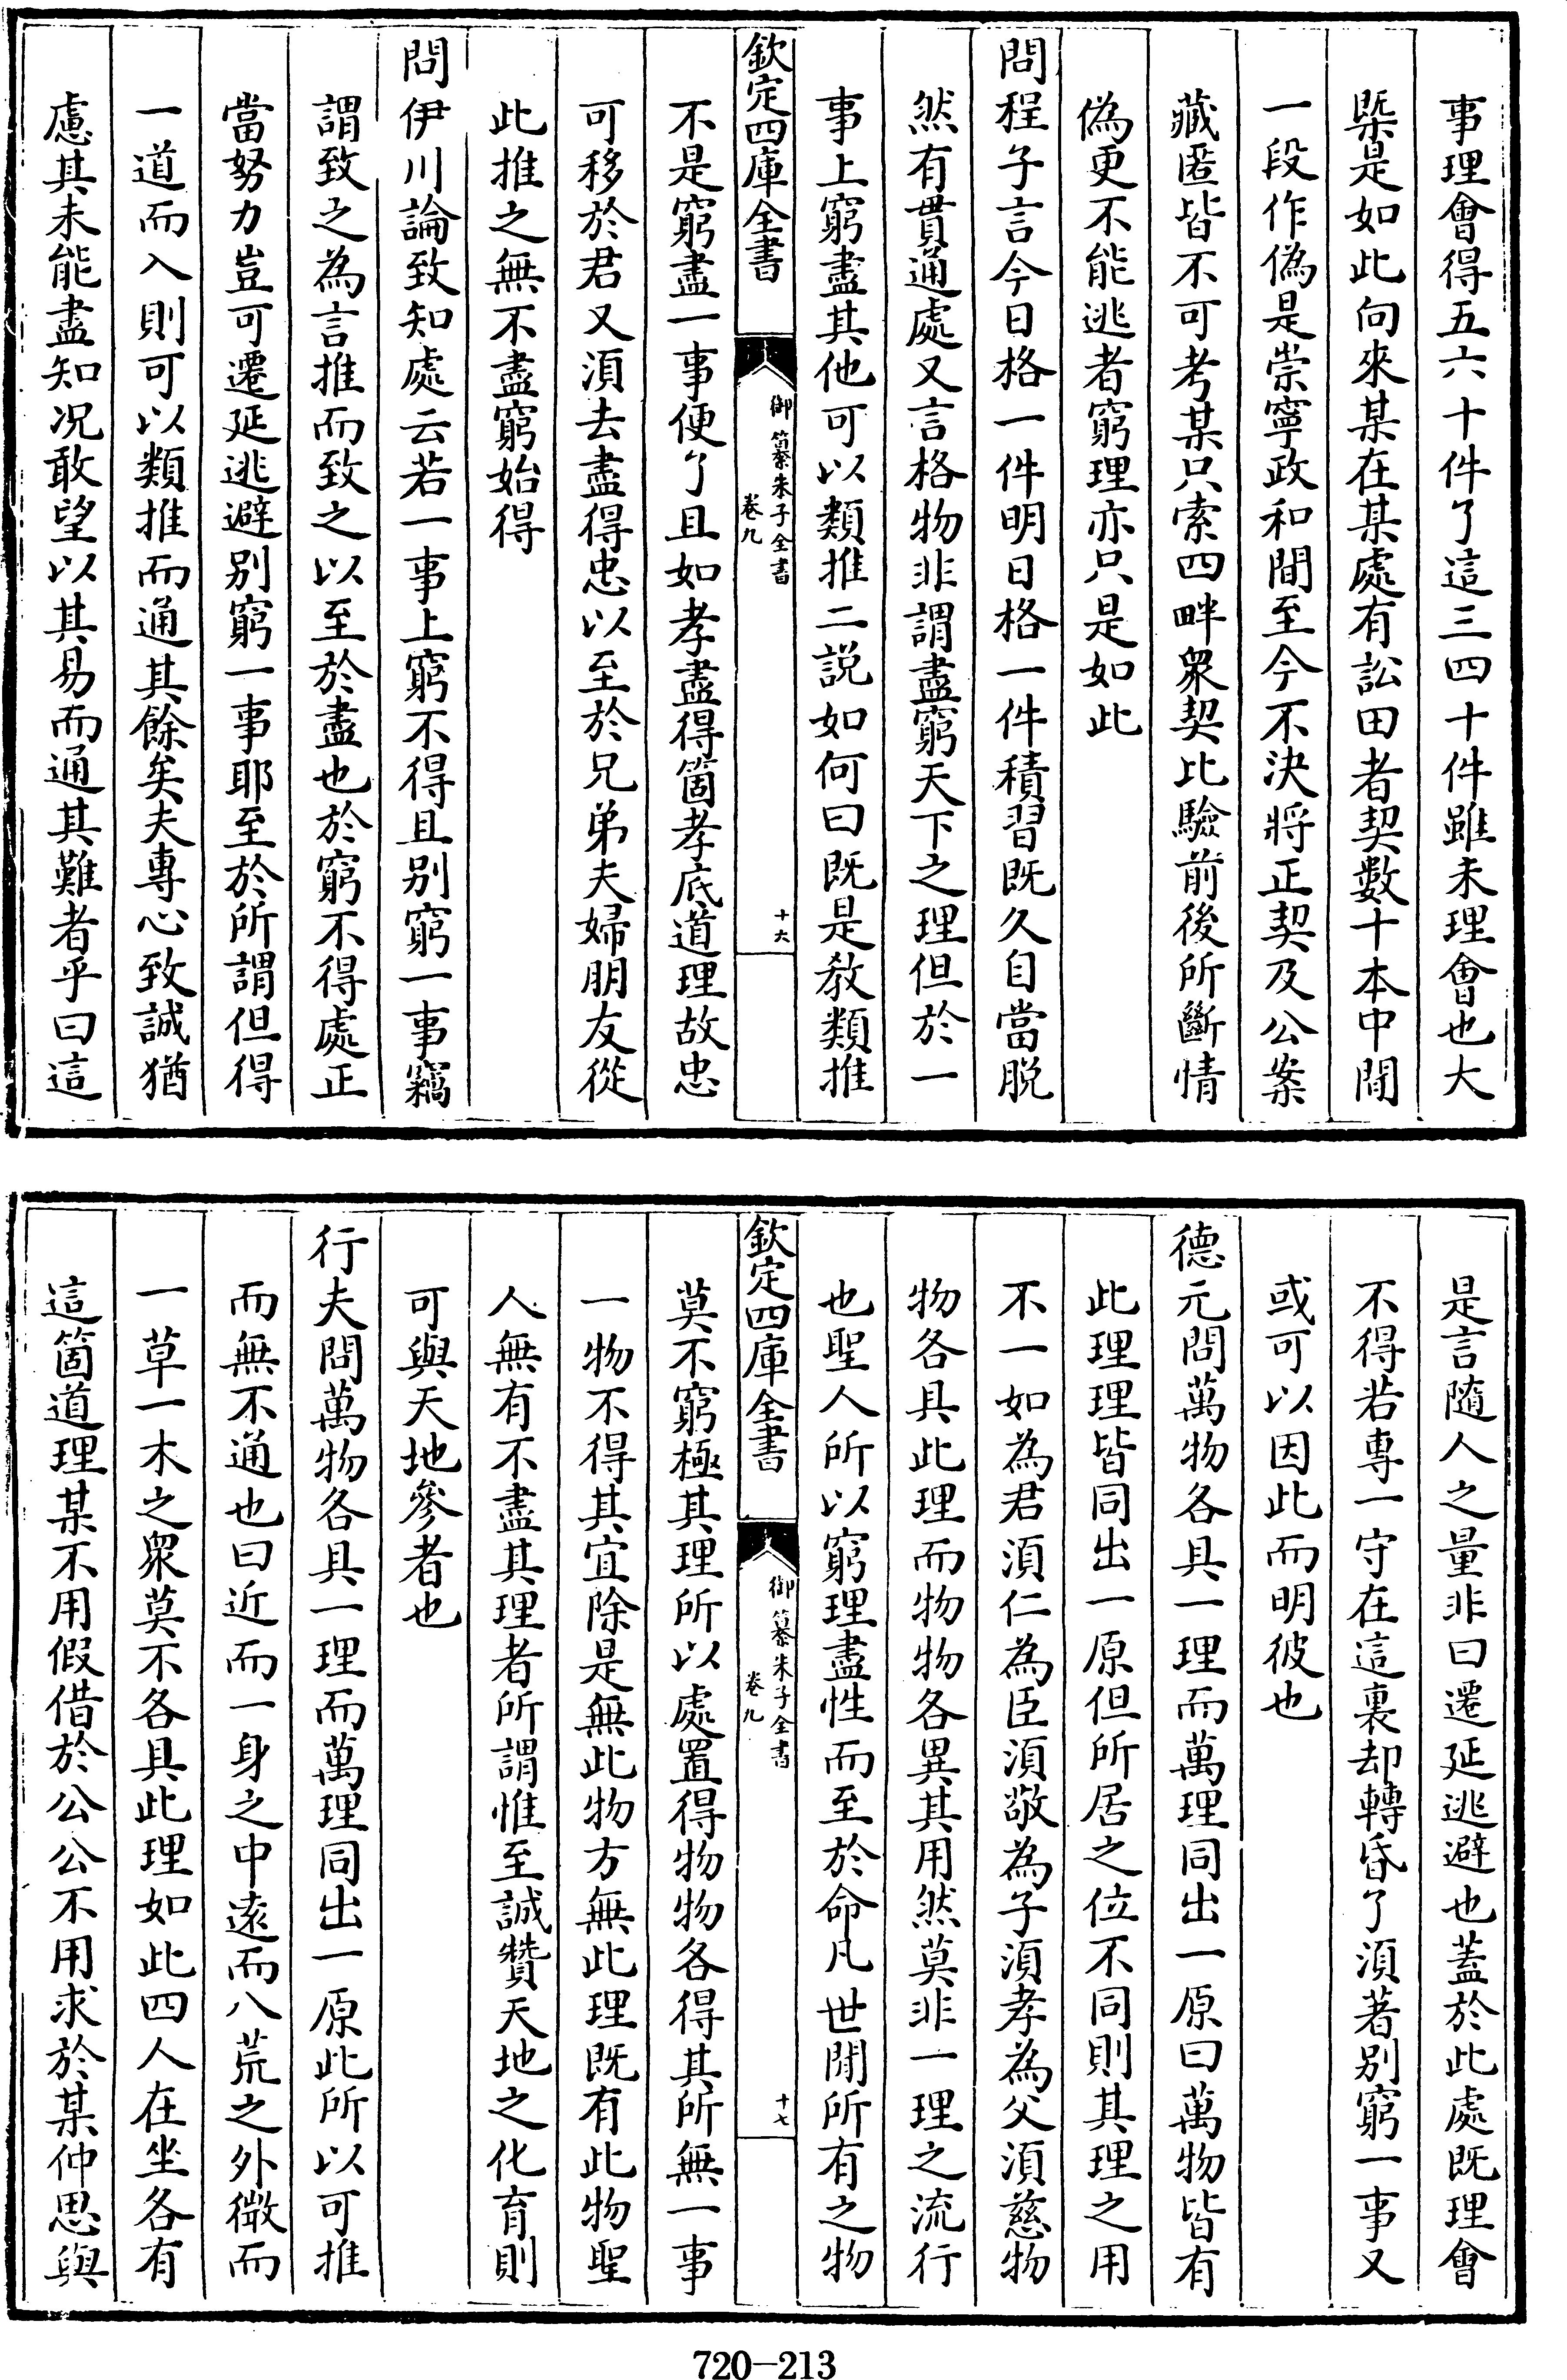 事理會得五六十件了這三四十件雖未理會也大
槩是如此向來某在某處有訟田者契數十本中間
一段作偽是崇寧政和間至今不決將正契及公案
藏匿皆不可考某只索四畔衆契比驗前後所斷情
偽更不能逃者窮理亦只是如此
問程子言今日格一件明日格一件積習既久自當脫
然有貫通處又言格物非謂盡窮天下之理但於一
事上窮盡其他可以類推二説如何曰既是教類推
欽定四庫全書
御纂朱子全書
卷九
十六
不是窮盡一事便了且如孝盡得箇孝底道理故忠
可移於君又湏去盡得忠以至於兄弟夫婦朋友從
此推之無不盡窮始得
問伊川論致知處云若一事上窮不得且别窮一事竊
謂致之為言推而致之以至於盡也於窮不得處正
當努力豈可遷延逃避别窮一事耶至於所謂但得
一道而入則可以類推而通其餘矣夫專心致誠猶
慮其未能盡知况敢望以其易而通其難者乎曰這
是言隨人之量非曰遷延逃避也蓋於此處既理會
不得若專一守在這裏却轉昏了湏著别窮一事又
或可以因此而明彼也
德元問萬物各具一理而萬理同出一原曰萬物皆有
此理理皆同出一原但所居之位不同則其理之用
不一如為君湏仁為臣湏敬為子湏孝為父湏慈物
物各具此理而物物各異其用然莫非一理之流行
也聖人所以窮理盡性而至於命凡世間所有之物
欽定四庫全書
御纂朱子全書
卷九
十七
莫不窮極其理所以處置得物物各得其所無一事
一物不得其宜除是無此物方無此理既有此物聖
人無有不盡其理者所謂惟至誠贊天地之化育則
可與天地參者也
行夫問萬物各具一理而萬理同出一原此所以可推
而無不通也曰近而一身之中遠而八荒之外微而
一草一木之衆莫不各具此理如此四人在坐各有
這箇道理某不用假借於公公不用求於某仲思與
720-213